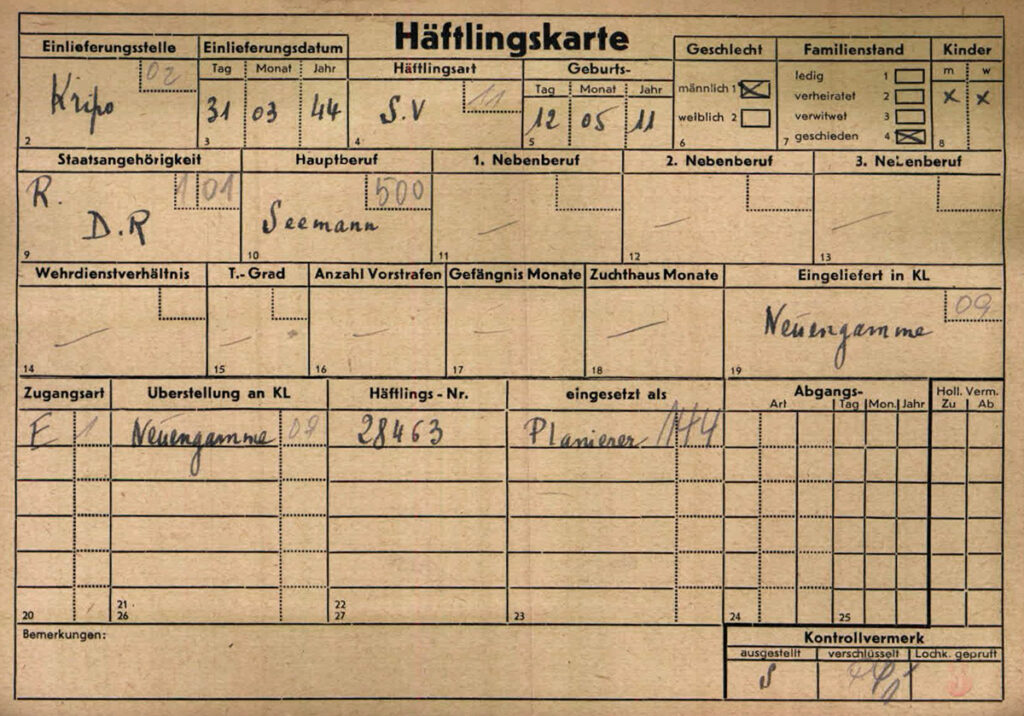 Häftlingskarte
Einlieferungsstelle
02
Kripo
2
Einlieferungsdatum
Tag Monat Jahr
31 03 44
3
Häftlingsart
11
S.V
4
Geburts-
Tag Monat Jahr
12 05 11
5
Geschlecht
männlich 1
weiblich 2
6
Familienstand
ledig 1
verheiratet 2
verwitwet 3
geschieden 4
7
Kinder
m w
x x
8
Staatsangehörigkeit
R. 1 01
D.R
9
Hauptberuf
500
Seemann
10
1. Nebenberuf
11
2. Nebenberuf
12
3. Nebenberuf
13
Wehrdienstverhältnis
14
T.-Grad
15
Anzahl Vorstrafen
16
Gefängnis Monate
17
Zuchthaus Monate
18
Eingeliefert in KL
09
Neuengamme
19
Zugangsart Überstellung an KL Häftlings-Nr. eingesetzt als
Abgangs-
Art Tag Mon. Jahr
Holl. Verm.
Zu Ab
E 1 Neuengamme 09 28463 Planierer 144
20 21 22 23 24 25
26 27
Bemerkungen:
Kontrollvermerk
ausgestellt verschlüsselt Lochk. geprüft